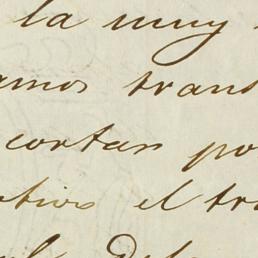 la muy
amos trans
cortar po
ativo el tra